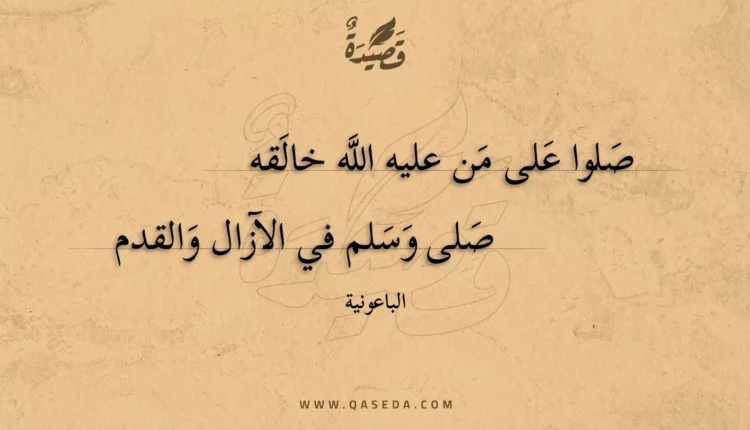 قَصِيْدَةٌ
صَلوا عَلى مَن عليه اللَّه خالَقه
صَلى وَسَلم في الآزال وَالقدم
الباعونية
WWW.QASEDA.COM